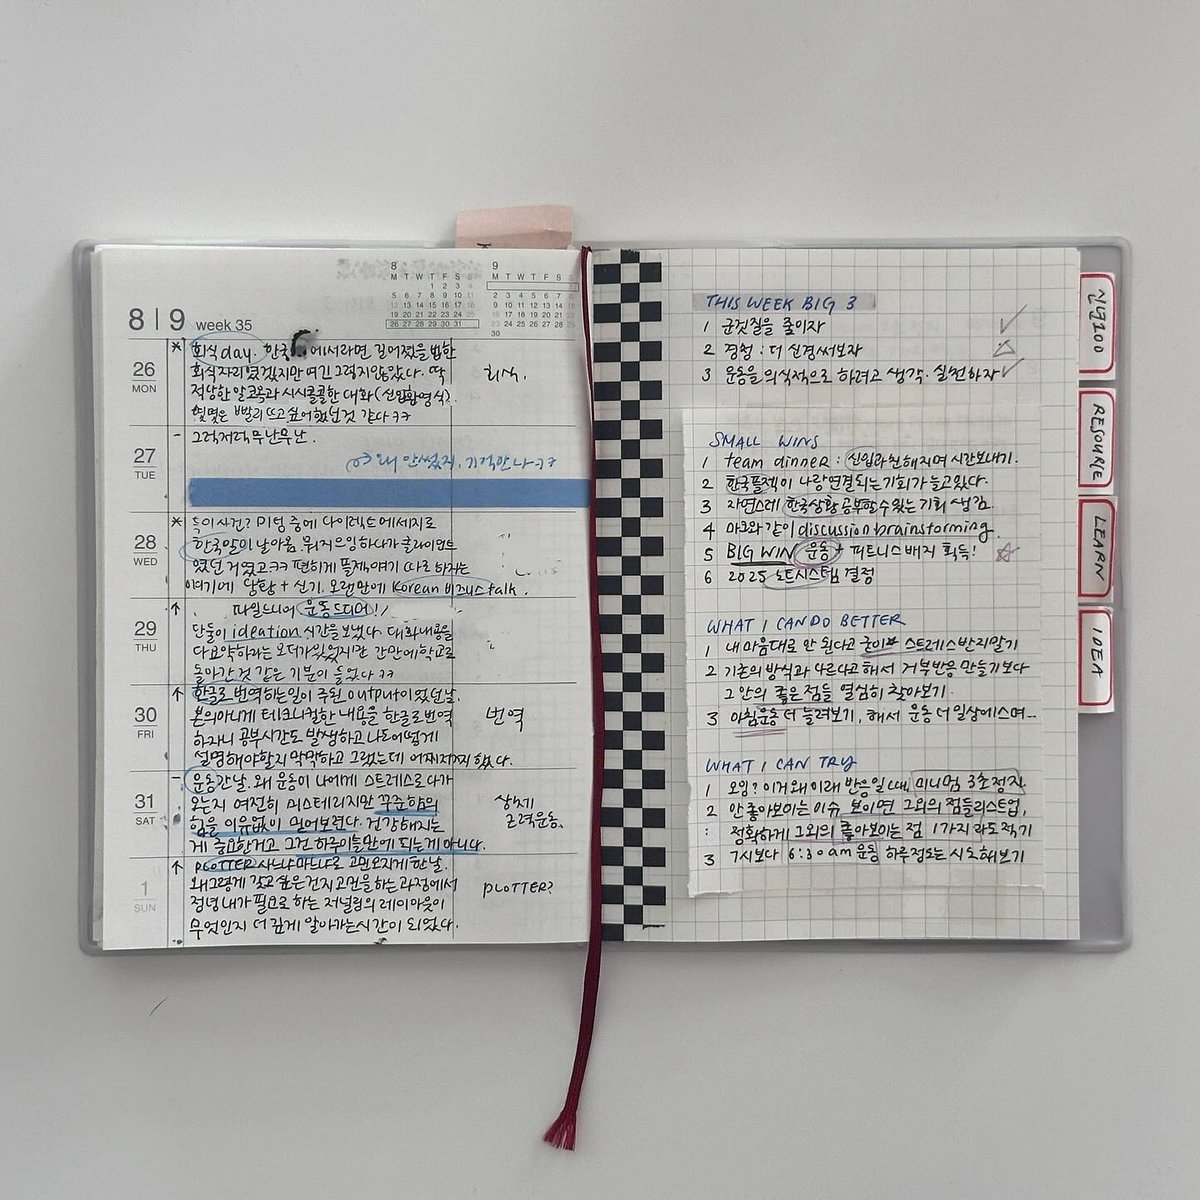 8 | 9 week 35
8
M T W T F S S
1 2 3 4
5 6 7 8 9 10 11
12 13 14 15 16 17 18
19 20 21 22 23 24 25
26 27 28 29 30 31
9
M T W T F S S
1
2 3 4 5 6 7 8
9 10 11 12 13 14 15
16 17 18 19 20 21 22
23 24 25 26 27 28 29
30
26 MON
* 회식 day. 한국 에서라면 길어졌을 법한
회식자리였겠지만 여긴 그렇지 않았다. 딱
적당한 알코올과 시시콜콜한 대화 (신입환영식).
몇몇은 빨리 뜨고 싶어했던 것 같다 ㅋㅋ
회식.
27 TUE
- 그럭저럭 무난무난.
왜 안썼지, 기억안나 ㅋㅋ
28 WED
* 특이사건? 미팅 중에 다이렉트 메세지로
한국말이 날아옴. 뭐지 으잉 하니까 클라이언트
였던 거였고 ㅋㅋ 편하게 플젝얘기 따로 하자는
얘기에 당황 + 신기. 오랜만에 Korean 비즈니스 talk.
29 THU
↑ 운동드디어!!
단둘이 ideation 시간을 보냈다. 대화내용을
다 요약하라는 오더가 있었지만 간만에 학교로
돌아간 것 같은 기분이 들었다 ㅋㅋ
30 FRI
↑ 한글로 번역하는 일이 주된 output이었던 날.
본의아니게 테크니컬한 내용을 한글로 번역
하자니 공부시간도 발생하고 나도 어떻게
설명해야할지 막막하고 그랬는데 어찌저찌 했다.
번역
31 SAT
- 운동간날. 왜 운동이 나에게 스트레스로 다가
오는지 여전히 미스테리지만 꾸준함의
힘을 이유없이 믿어보련다. 건강해지는
게 중요한거고 그건 하루이틀만에 되는게 아니다.
근력운동.
1 SUN
↑ PLOTTER 사냐마냐로 고민오지게 한날.
왜 그렇게 갖고 싶은건지 고민을 하는 과정에서
정녕 내가 필요로 하는 저널링의 레이아웃이
무엇인지 더 깊게 알아가는 시간이 되었다.
PLOTTER?
THIS WEEK BIG 3
1 군것질을 줄이자
2 경청 : 더 신경써보자
3 운동을 의식적으로 하려고 생각·실천하자
SMALL WINS
1 team dinner : 신입과 친해지며 시간보내기.
2 한국플젝이 나랑 연결되는 기회가 늘고있다.
3 자연스레 한국상황 공부할 수 있는 기회 생김
4 마크와 같이 discussion brainstorming.
5 BIG WIN 운동 + 피트니스 배지 획득!
6 2025 노트시스템 결정
WHAT I CAN DO BETTER
1 내 마음대로 안 된다고 굳이 스트레스 받지말기
2 기존의 방식과 다르다고 해서 거부반응 만들기보다
그 안의 좋은 점들 열심히 찾아보기.
3 아침운동 더 늘려보기, 해서 운동 더 일상에 스며..
WHAT I CAN TRY
1 오잉? 이거 왜 이래 반응일 때, 미니멈 3초 정지
2 안 좋아보이는 이슈 보이면 그 외의 점들 리스트업,
: 정확하게 그 외의 좋아보이는 점 1가지라도 적기
3 7시보다 6:30am 운동 하루정도는 시도해보기
신남100
RESOURCE
LEARN
IDEA